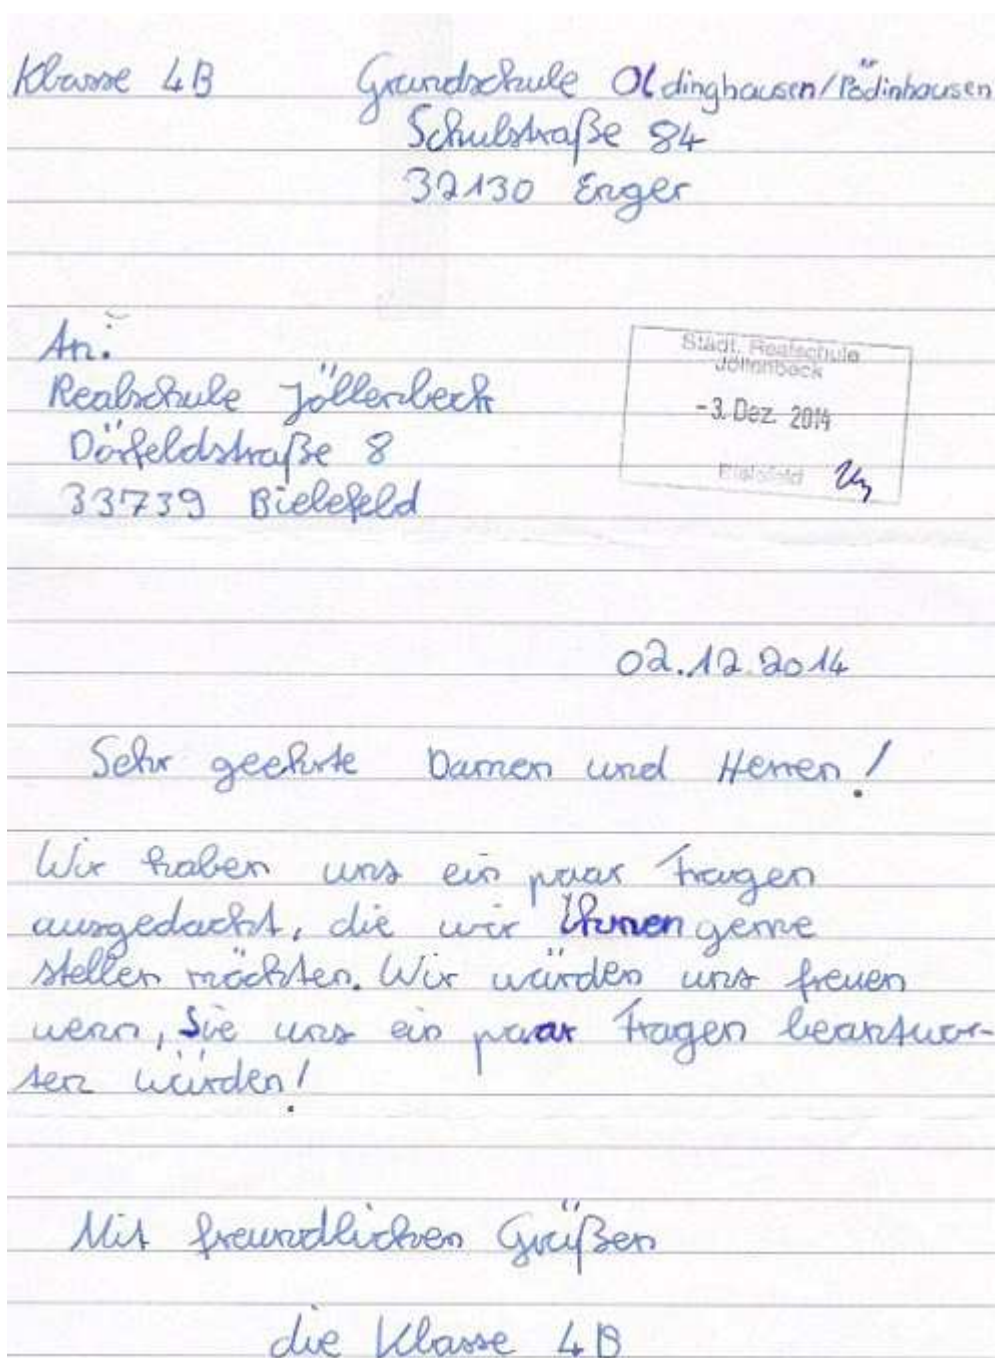 Klasse 4B Grundschule Oldinghausen/Pödinhausen
Schulstraße 84
32130 Enger
An:
Realschule Jöllenbeck
Dörfeldstraße 8
33739 Bielefeld
Städt. Realschule
Jöllenbeck
-3. Dez. 2014
Bielefeld
02.12.2014
Sehr geehrte Damen und Herren!
Wir haben uns ein paar Fragen
ausgedacht, die wir Ihnen gerne
stellen möchten. Wir würden uns freuen
wenn, Sie uns ein paar Fragen beantwor-
ten würden!
Mit freundlichen Grüßen
die Klasse 4B